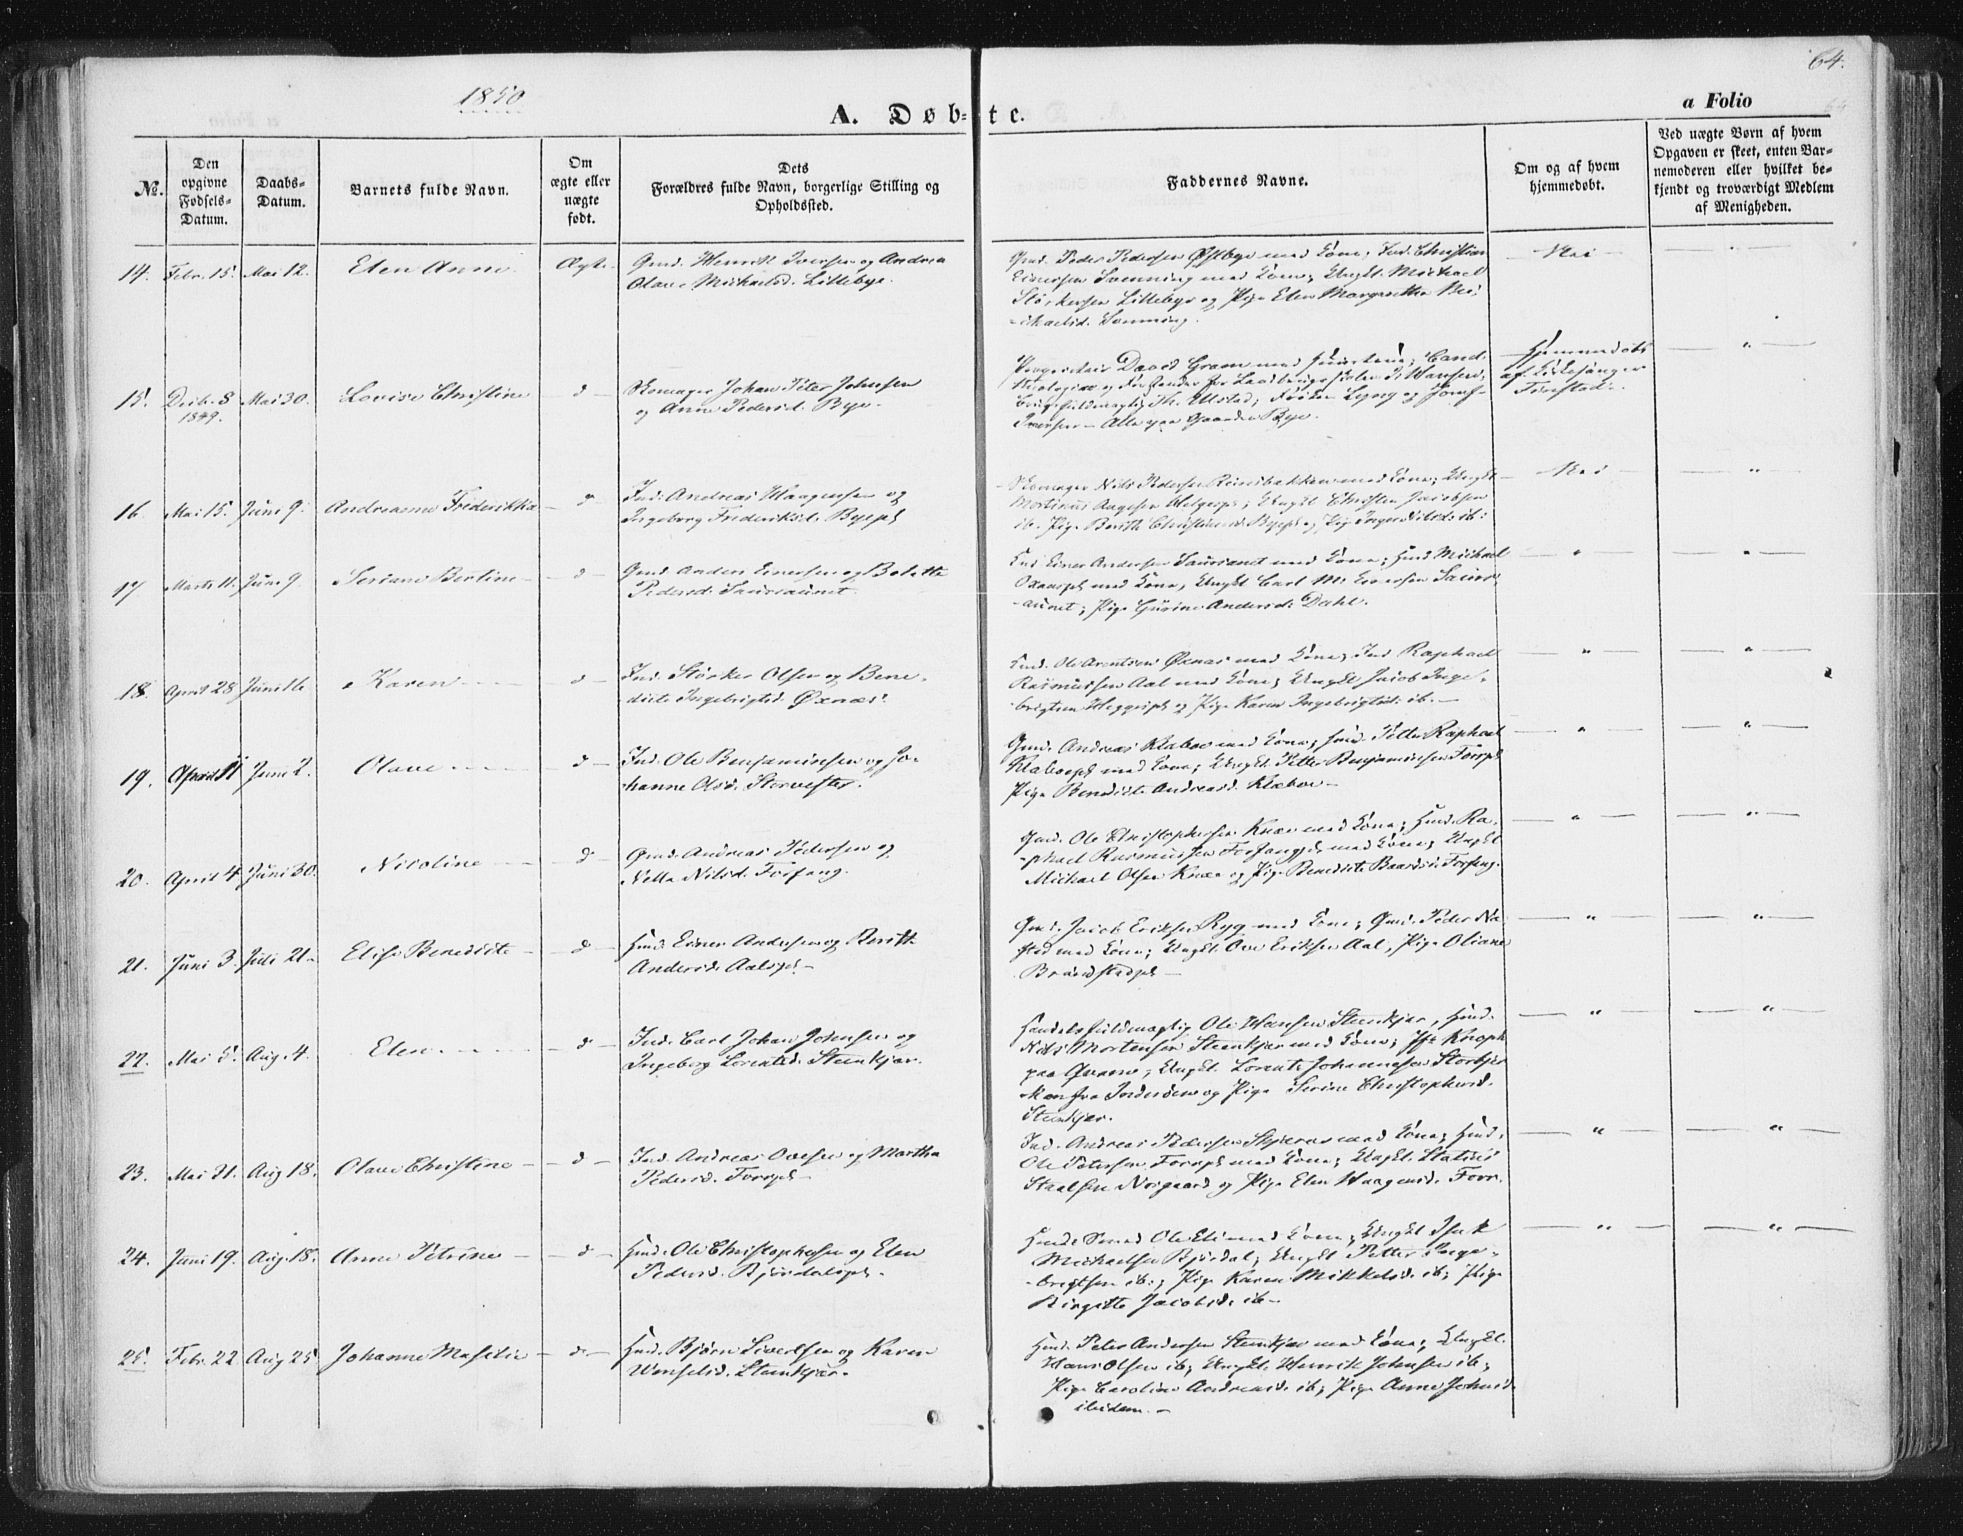 64.
1850
A. Døbte.
a Folio
No.
Den opgivne Fødsels-Datum.
Daabs-Datum.
Barnets fulde Navn.
Om ægte eller uægte født.
Dets Forældres fulde Navn, borgerlige Stilling og Opholdssted.
Faddernes Navne.
Om og af hvem hjemmedøbt.
Ved uægte Børn af hvem Opgaven er skeet, enten Barnemoderen eller hvilket bekjendt og troværdigt Medlem af Menigheden.
14. Febr. 15. Mai 12. Elen Anna Ægte
Gmd. Henrik Iversen og Andrea
Olava Michaelsd. Lillebye.
Gmd. Peder Pedersen Østbye med Kone; Ind. Christian
Einersen Svenning med Kone; Ungk. Michael
Størkersen Lillebye og Pige Elen Margrethe Mi-
chaelsd. Svenning.
Nei
15. Decbr. 8 1849. Mai 30. Lovise Christine d
Skomager Johan Peter Johnsen
og Anne Pedersd. Bye.
Proprietair David Gram med Huustrue; Cand.
Theologiæ og
Th. Ulstad;
Iversen - Alle paa Gaarden Bye.
Hjemmedøbt
af Kirkesanger
16. Mai 15. Juni 9. Andreanna Frederikka d
Ind. Andreas Haagensen og
Ingeborg Frederiksd. Byepl.
Skomager Nils Pedersen med Kone; Ungk.
Mortinus Aagesen ; Ungk. Christen Jacobsen
ib. Pige Berith Byepl. og Pige Inger Nilsd. ib.
Nei
17 Marts 11. Juni 9. Seriane Bertine d
Gmd. Anders Einersen og Bolette
Pedersd. Sauriaunet.
Ind. Einer Andersen Sauriaunet med Kone; Hmd. Michael
med Kone, Ungk. Carl M. Einersen Sauri-
aunet; Pige Gurine Andersd. Dahl.
18. April 28. Juni 16 Karen d
Ind. Størker Olsen og Bene-
dicte Ingebrigtsd. Øxnæs.
Hmd. Ole Arentsen Øxnæs med Kone; Ind. Raphael
Rasmussen Aal med Kone; Ungk. Jacob Inge-
brigtsen Heggepl. og Pige Karen Ingebrigtsd. ib.
19. April 11 Juni 2. Olava d
Ind. Ole Benjaminsen og Jo-
hanne Olsd.
Gmd. Andreas Klaboe med Kone; Hmd. Petter Raphael
Klaboepl. med Kone; Ungk. Petter Benjaminsen Forrpl.
Pige Benedicte Andreasd. Klaboe
20. April 4. Juni 30. Nicoline d
Gmd. Andreas Pedersen og
Nella Nilsd. Forfang.
Gmd. Ole Christophersen Knæe med Kone; Hmd. Ra-
phael Rasmussen Forfangpl. med Kone; Ungk.
Michael Olsen Knæe og Pige Benedicte Baardsd. Forfang.
21. Juni 3. Juli 21. Elise Benedicte d
Hmd. Einer Andersen og Berith
Andersd. Aalspl.
Gmd. Jacob Eriksen Ryg med Kone; Gmd. Peder Na-
stad med Kone; Ungk. Ove Eriksen Aal, Pige Oliane
Brandstadpl.
22. Mai 5. Aug. 4. Elen d
Ind. Carl Johan Johnsen og
Ingeborg Lorentsd. Steenkjær.
Handelsfuldmægtig Ole Hansen Steenkjær, Hmd.
Nils Mortensen Steenkjær med Kone;
paa Qvam; Ungk. Lorents Johannesen
fra Inderøen og Pige Serine Christophersd.
Steenkjær.
23. Mai 21. Aug 18. Olava Christine d
Ind. Andreas Ovesen og Martha
Pedersd. Forrpl.
Ind. Andreas Pedersen med Kone; Hmd.
Ole Petersen Forrpl. med Kone; Ungk.
Norgaard og Pige Elen Haagensd. Forr.
24. Juni 19. Aug. 18. Anne Petrine d
Hmd. Ole Christophersen og Elen
Pedersd. Bjørdalspl.
Ole med Kone; Ungk. Isak
Michaelsen Bjørdal; Ungk. Petter Inge-
brigtsen ib.; Pige Karen Mikkelsd. ib; Pige
Birgitte Jacobsd. ib
25. Febr. 22 Aug 25 Johanne d
Hmd. Bjørn Sivertsen og Karen
Steenkjær.
Hmd. Peter Andersen Steenkjær med Kone; Ungk.
Hans Olsen ib; Ungk. Henrik Johnsen ib;
Pige Caroline Andreasd. ib; Pige Anne Johnsd.
ibidem.